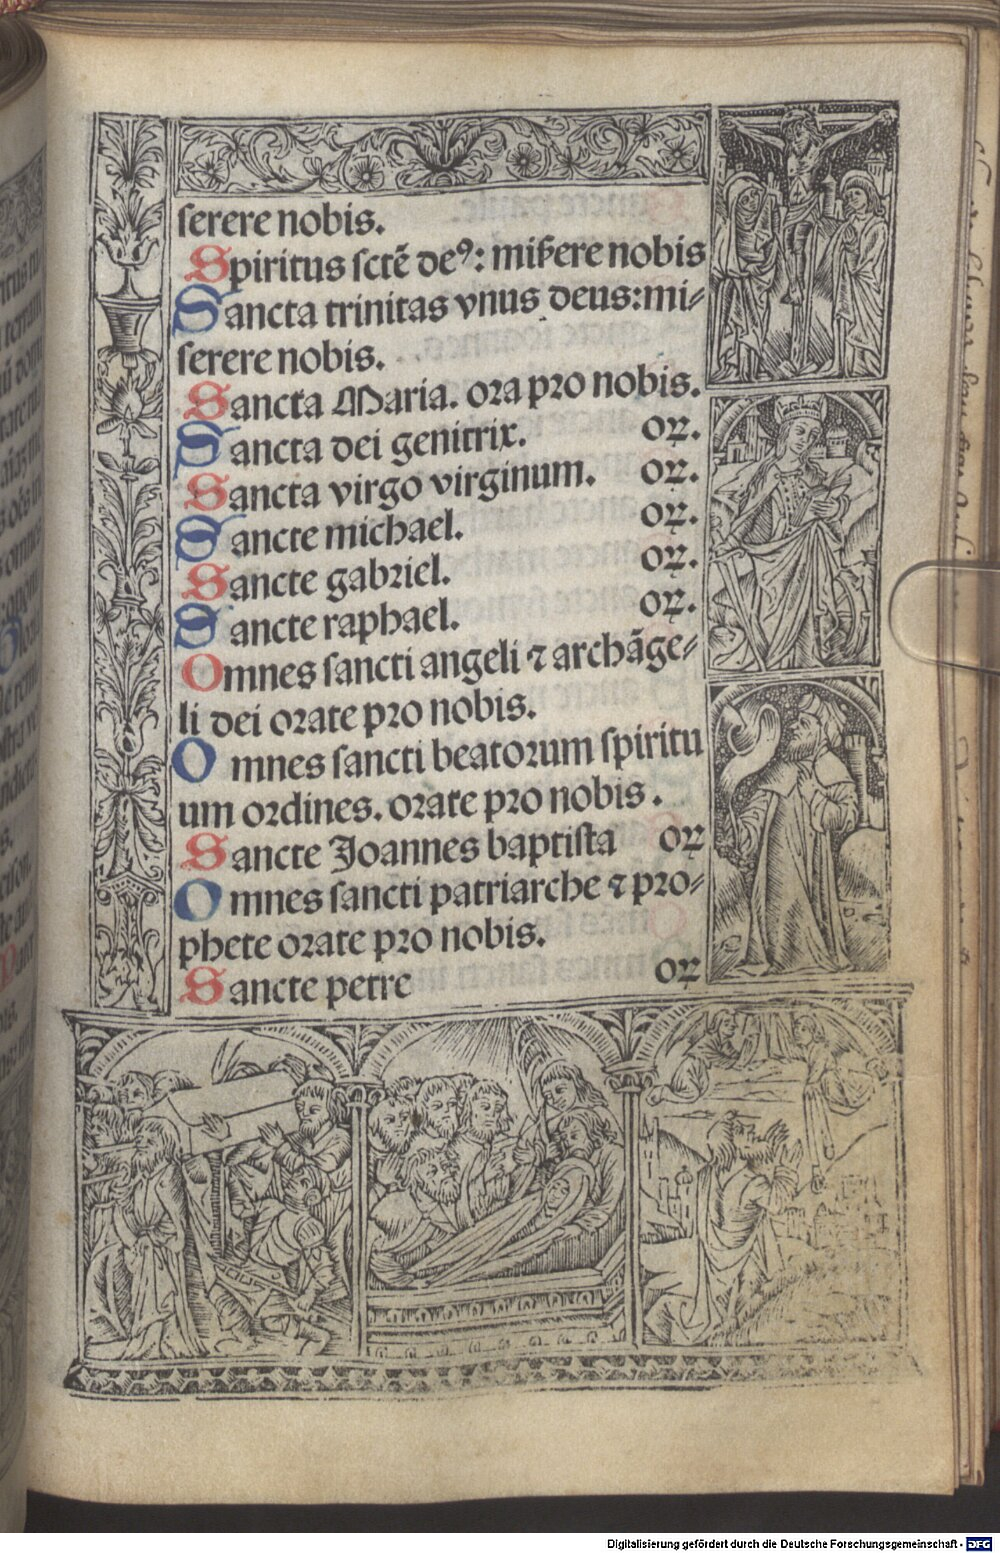 serere nobis.
Spiritus sctẽ deꝰ: miẜere nobis
Sancta trinitas vnus deus: mi⸗
serere nobis.
Sancta Maria. ora pro nobis.
Sancta dei genitrix. oꝝ.
Sancta virgo virginum. oꝝ.
Sancte michael. oꝝ.
Sancte gabriel. oꝝ.
Sancte raphael. oꝝ.
Omnes sancti angeli ⁊ archãge⸗
li dei orate pro nobis.
Omnes sancti beatorum spiritu
um ordines. orate pro nobis.
Sancte Joannes baptista oꝝ
Omnes sancti patriarche ⁊ pro⸗
phete orate pro nobis.
Sancte petre oꝝ
Digitalisierung gefördert durch die Deutsche Forschungsgemeinschaft - DFG